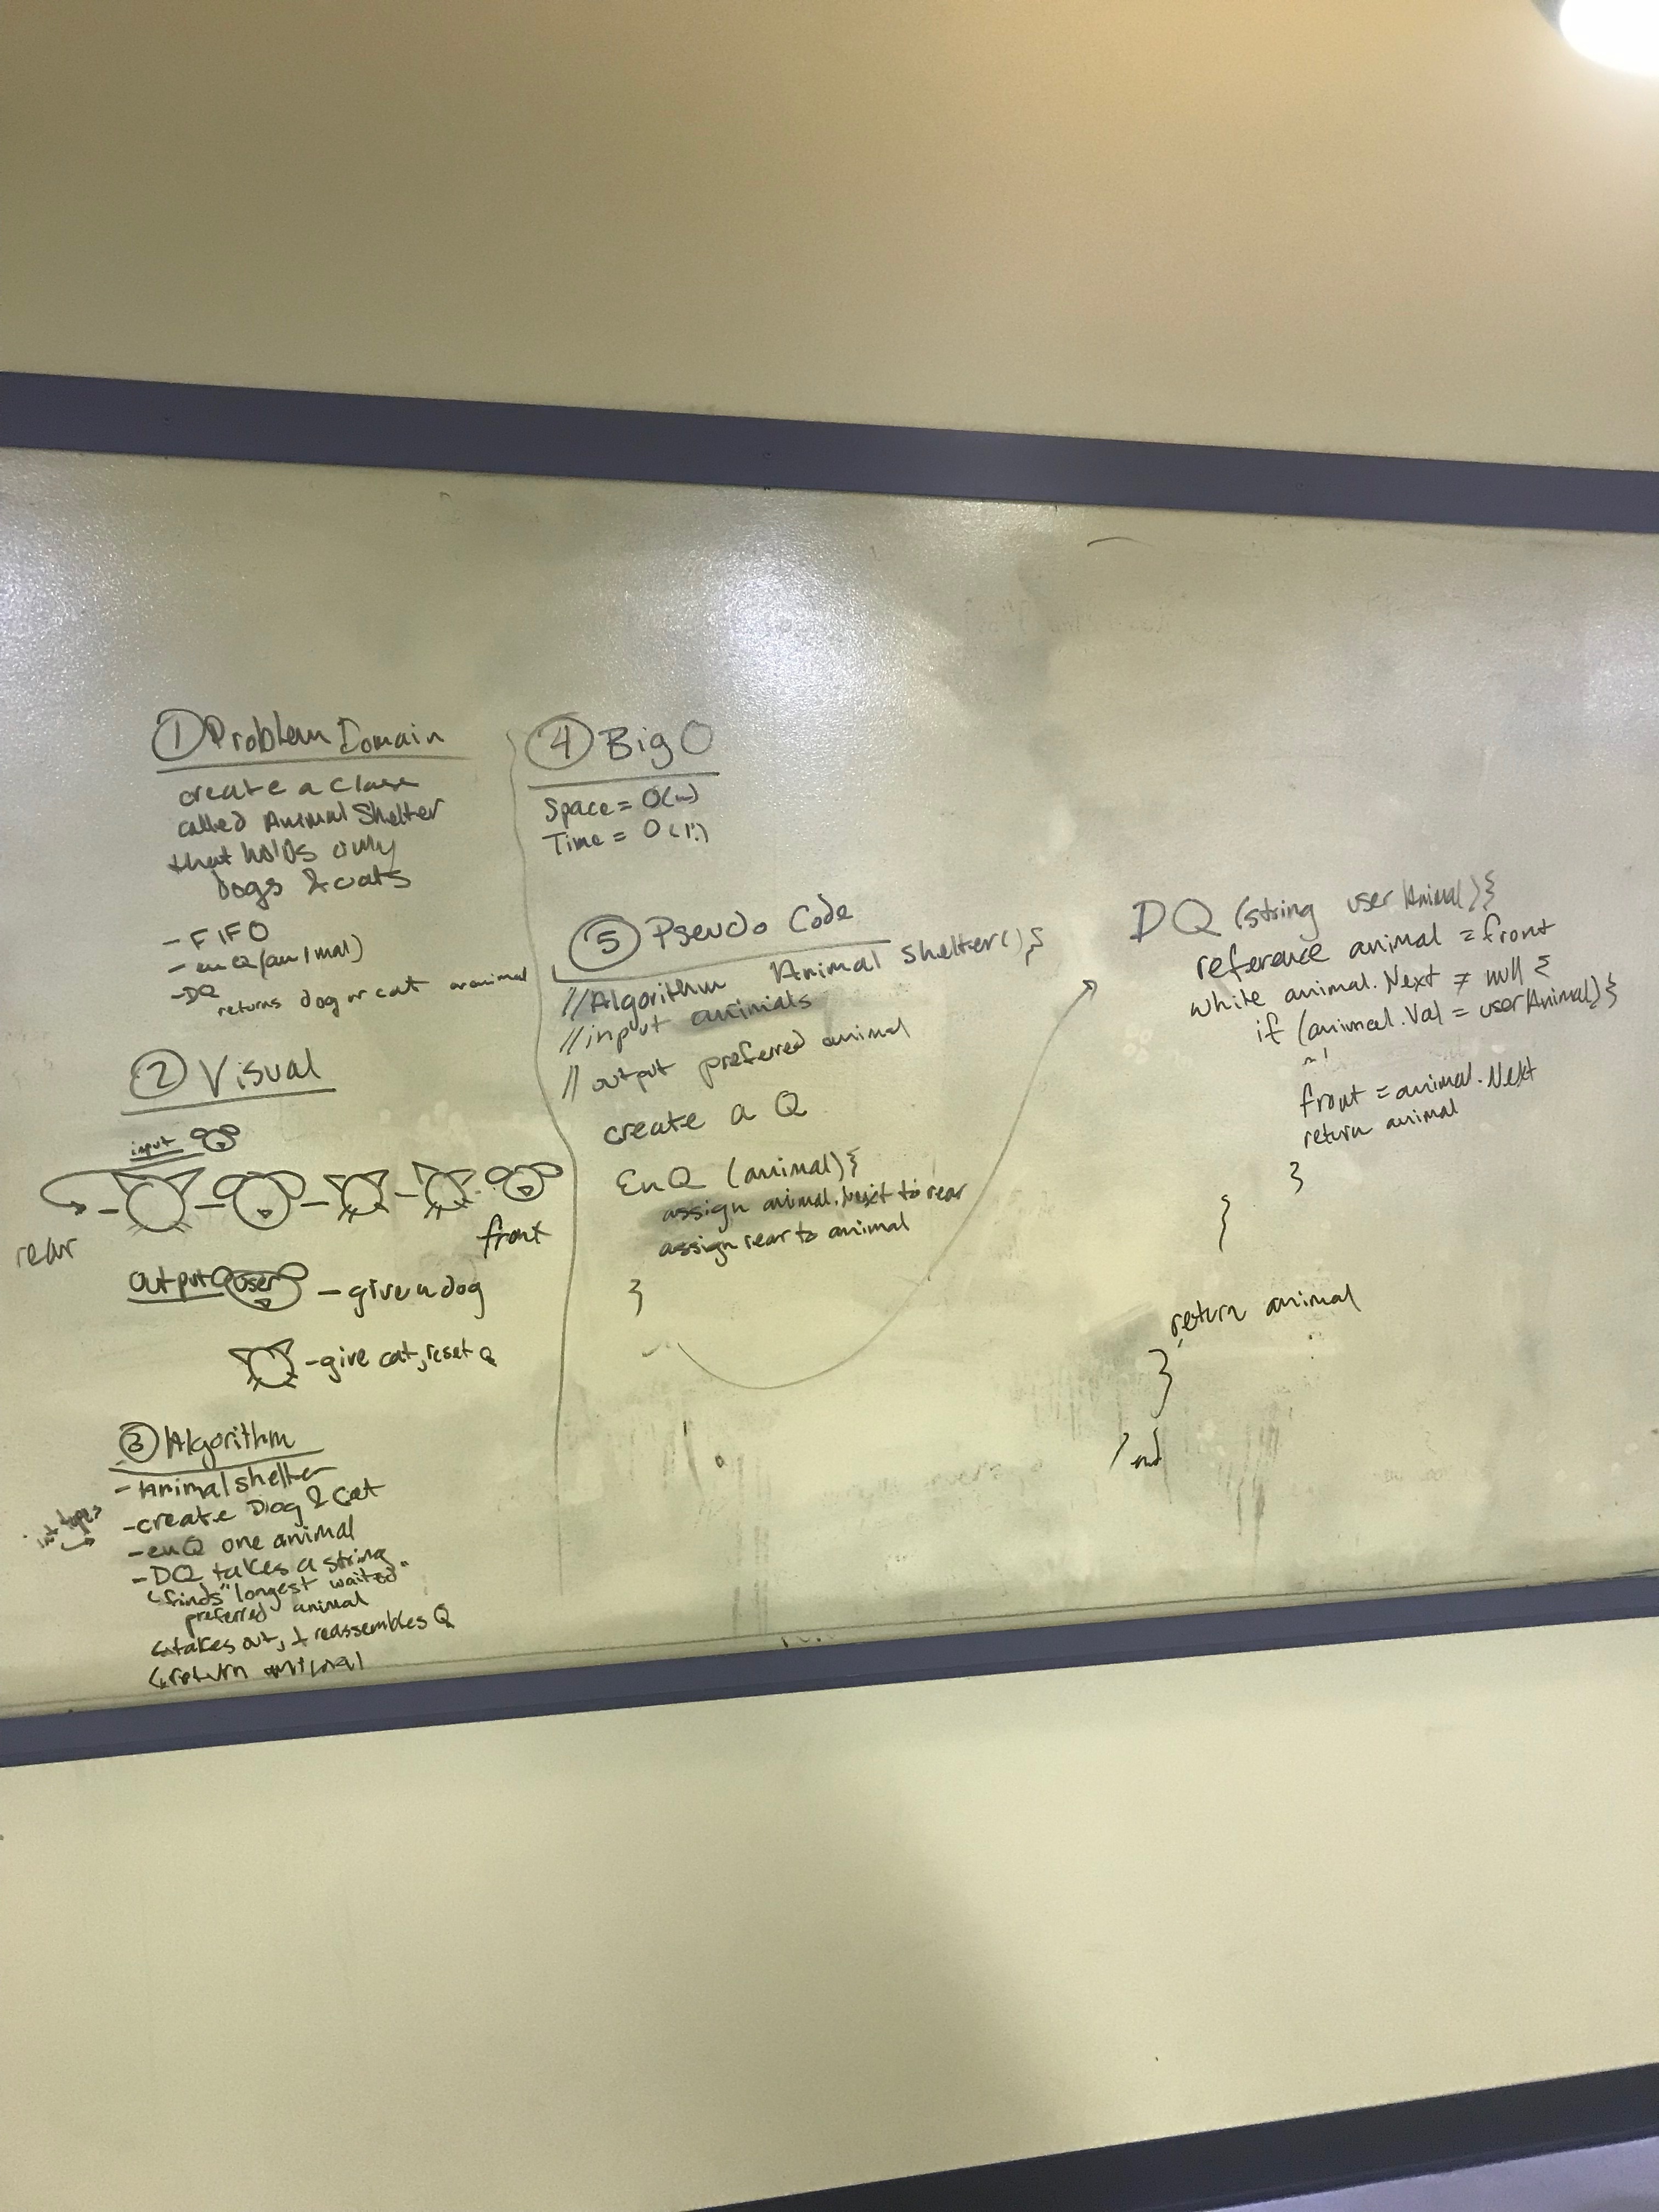 ① Problem Domain
create a class
called Animal Shelter
that holds only
Dogs & cats
- FIFO
- enQ(animal)
- DQ
returns dog or cat or animal
② Visual
input
rear
front
Output user - give a dog
- give cat, reset Q
③ Algorithm
- Animal shelter
- create Dog & Cat
- enQ one animal
- DQ takes a string
finds "longest waited"
preferred animal
takes out, & reassembles Q
return animal
④ Big O
Space = O(n)
Time = O(1)
⑤ Pseudo Code
//Algorithm Animal shelter(){
//input animals
// output preferred animal
create a Q
EnQ (animal){
assign animal.Next to rear
assign rear to animal
}
DQ (string userAnimal){
reference animal = front
while animal.Next ≠ null {
if (animal.Val = userAnimal){
front = animal.Next
return animal
}
}
return animal
}
/end